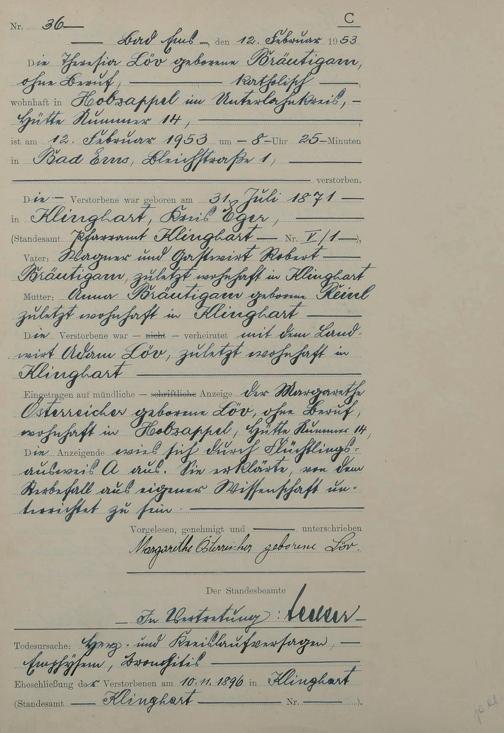 C
Nr. 36
Bad Ems, den 12. Februar 1953
Die Theresia Löv geborene Bräutigam,
ohne Beruf, katholisch
wohnhaft in Holzappel im Unterlahnkreis,
Hütte Nummer 14,
ist am 12. Februar 1953 um 8 Uhr 25 Minuten
in Bad Ems, Bleichstraße 1,
verstorben.
Die Verstorbene war geboren am 31. Juli 1871
in Klinghart, Kreis Eger,
(Standesamt Pfarramt Klinghart Nr. V/1),
Vater: Wagner und Gastwirt Robert
Bräutigam, zuletzt wohnhaft in Klinghart
Mutter: Anna Bräutigam geborene Reinl
zuletzt wohnhaft in Klinghart
Die Verstorbene war — nicht — verheiratet mit dem Land-
wirt Adam Löv, zuletzt wohnhaft in
Klinghart
Eingetragen auf mündliche — schriftliche Anzeige der Margarethe
Österreicher geborene Löv, ohne Beruf,
wohnhaft in Holzappel, Hütte Nummer 14,
Die Anzeigende wies sich durch Flüchtlings-
ausweis A aus. Sie erklärte, von dem
Sterbefall aus eigener Wissenschaft un-
terrichtet zu sein.
Vorgelesen, genehmigt und unterschrieben
Margarethe Österreicher geborene Löv.
Der Standesbeamte
In Vertretung:
Todesursache: Herz- und Kreislaufversagen,
Emphysem, Bronchitis
Eheschließung der Verstorbenen am 10.11.1896 in Klinghart
(Standesamt Klinghart Nr. ).